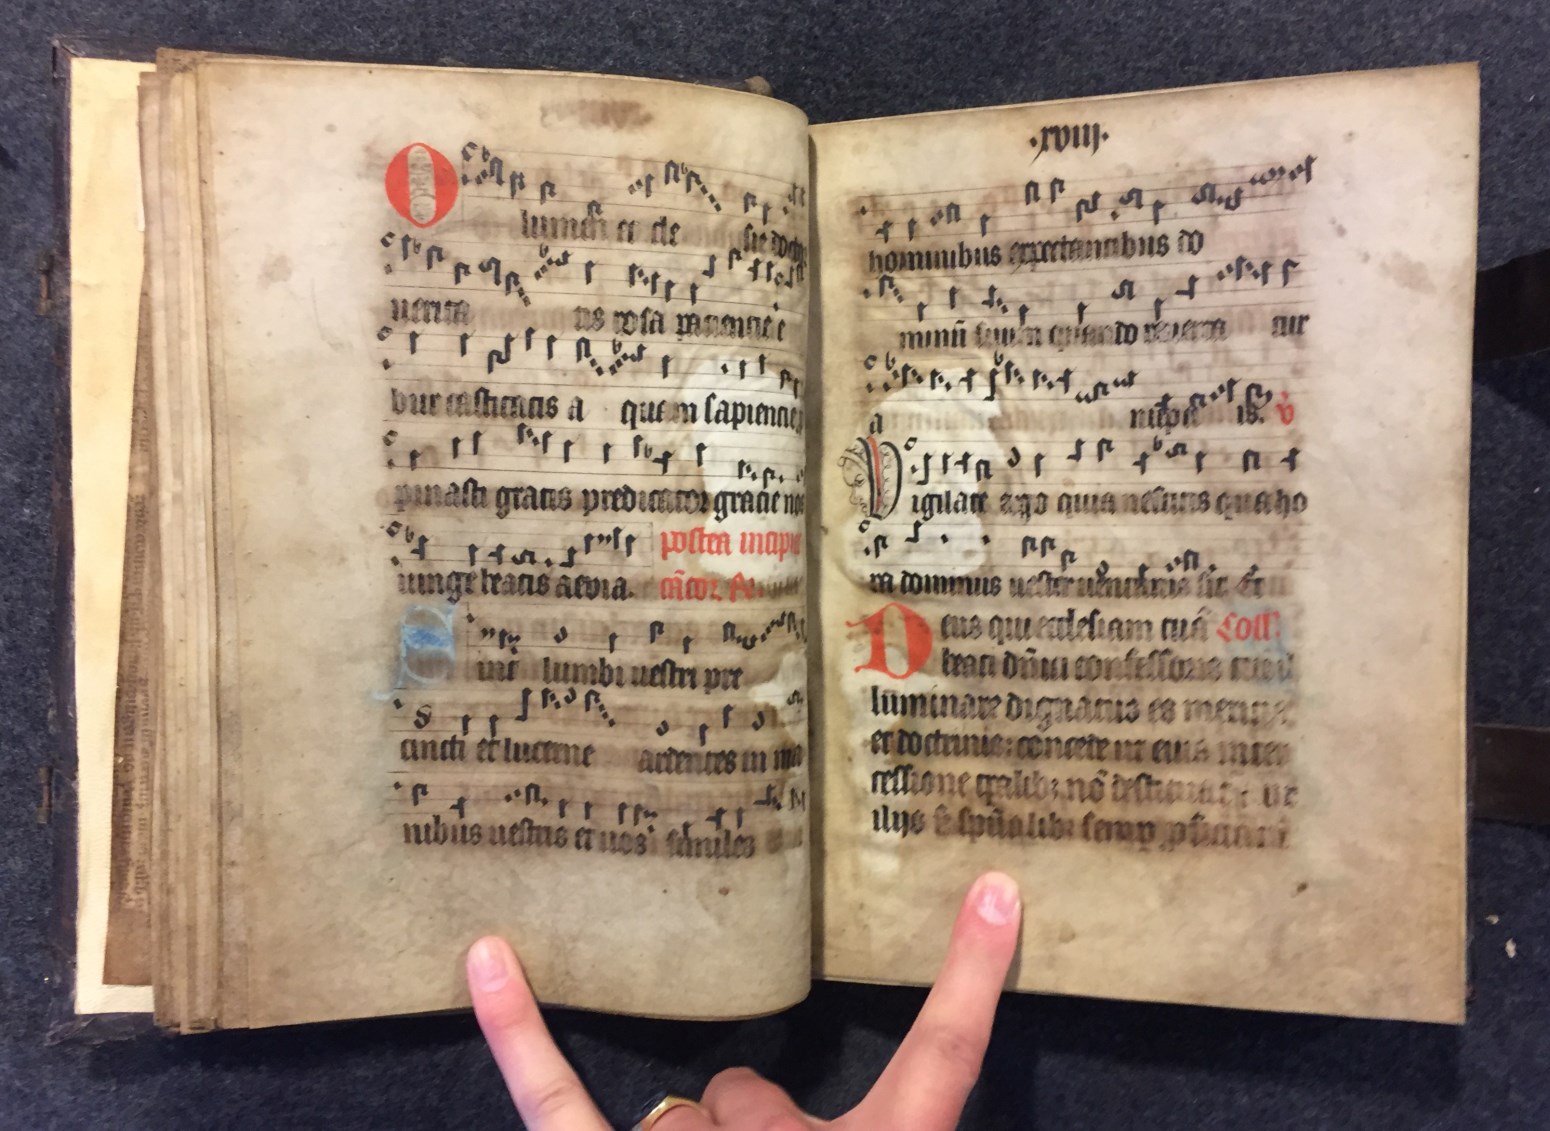 O lumen et cle sie docto
verita tis rosa paciencie e
bur castitatis a quam sapiencie
pinasti gratis predicator gracie nos
iunge beatis aevia. postea incipit
cātor
int lumbi vestri pre
cincti et lucerne ardentes in ma
nibus vestris et vos similes
·xviii·
hominibus expectantibus do
minū suum quando reverta tur
a nupcis. v
Vigilate ergo quia nescitis qua ho
ra dominus vester venturus sit Et
Deus qui ecclesiam tuā Coll
beati dn̄ici confessoris tui il
luminare dignatus es meritis
et doctrinis: concede ut eius inter
cessione tp̄alibꝫ nō destituat^r